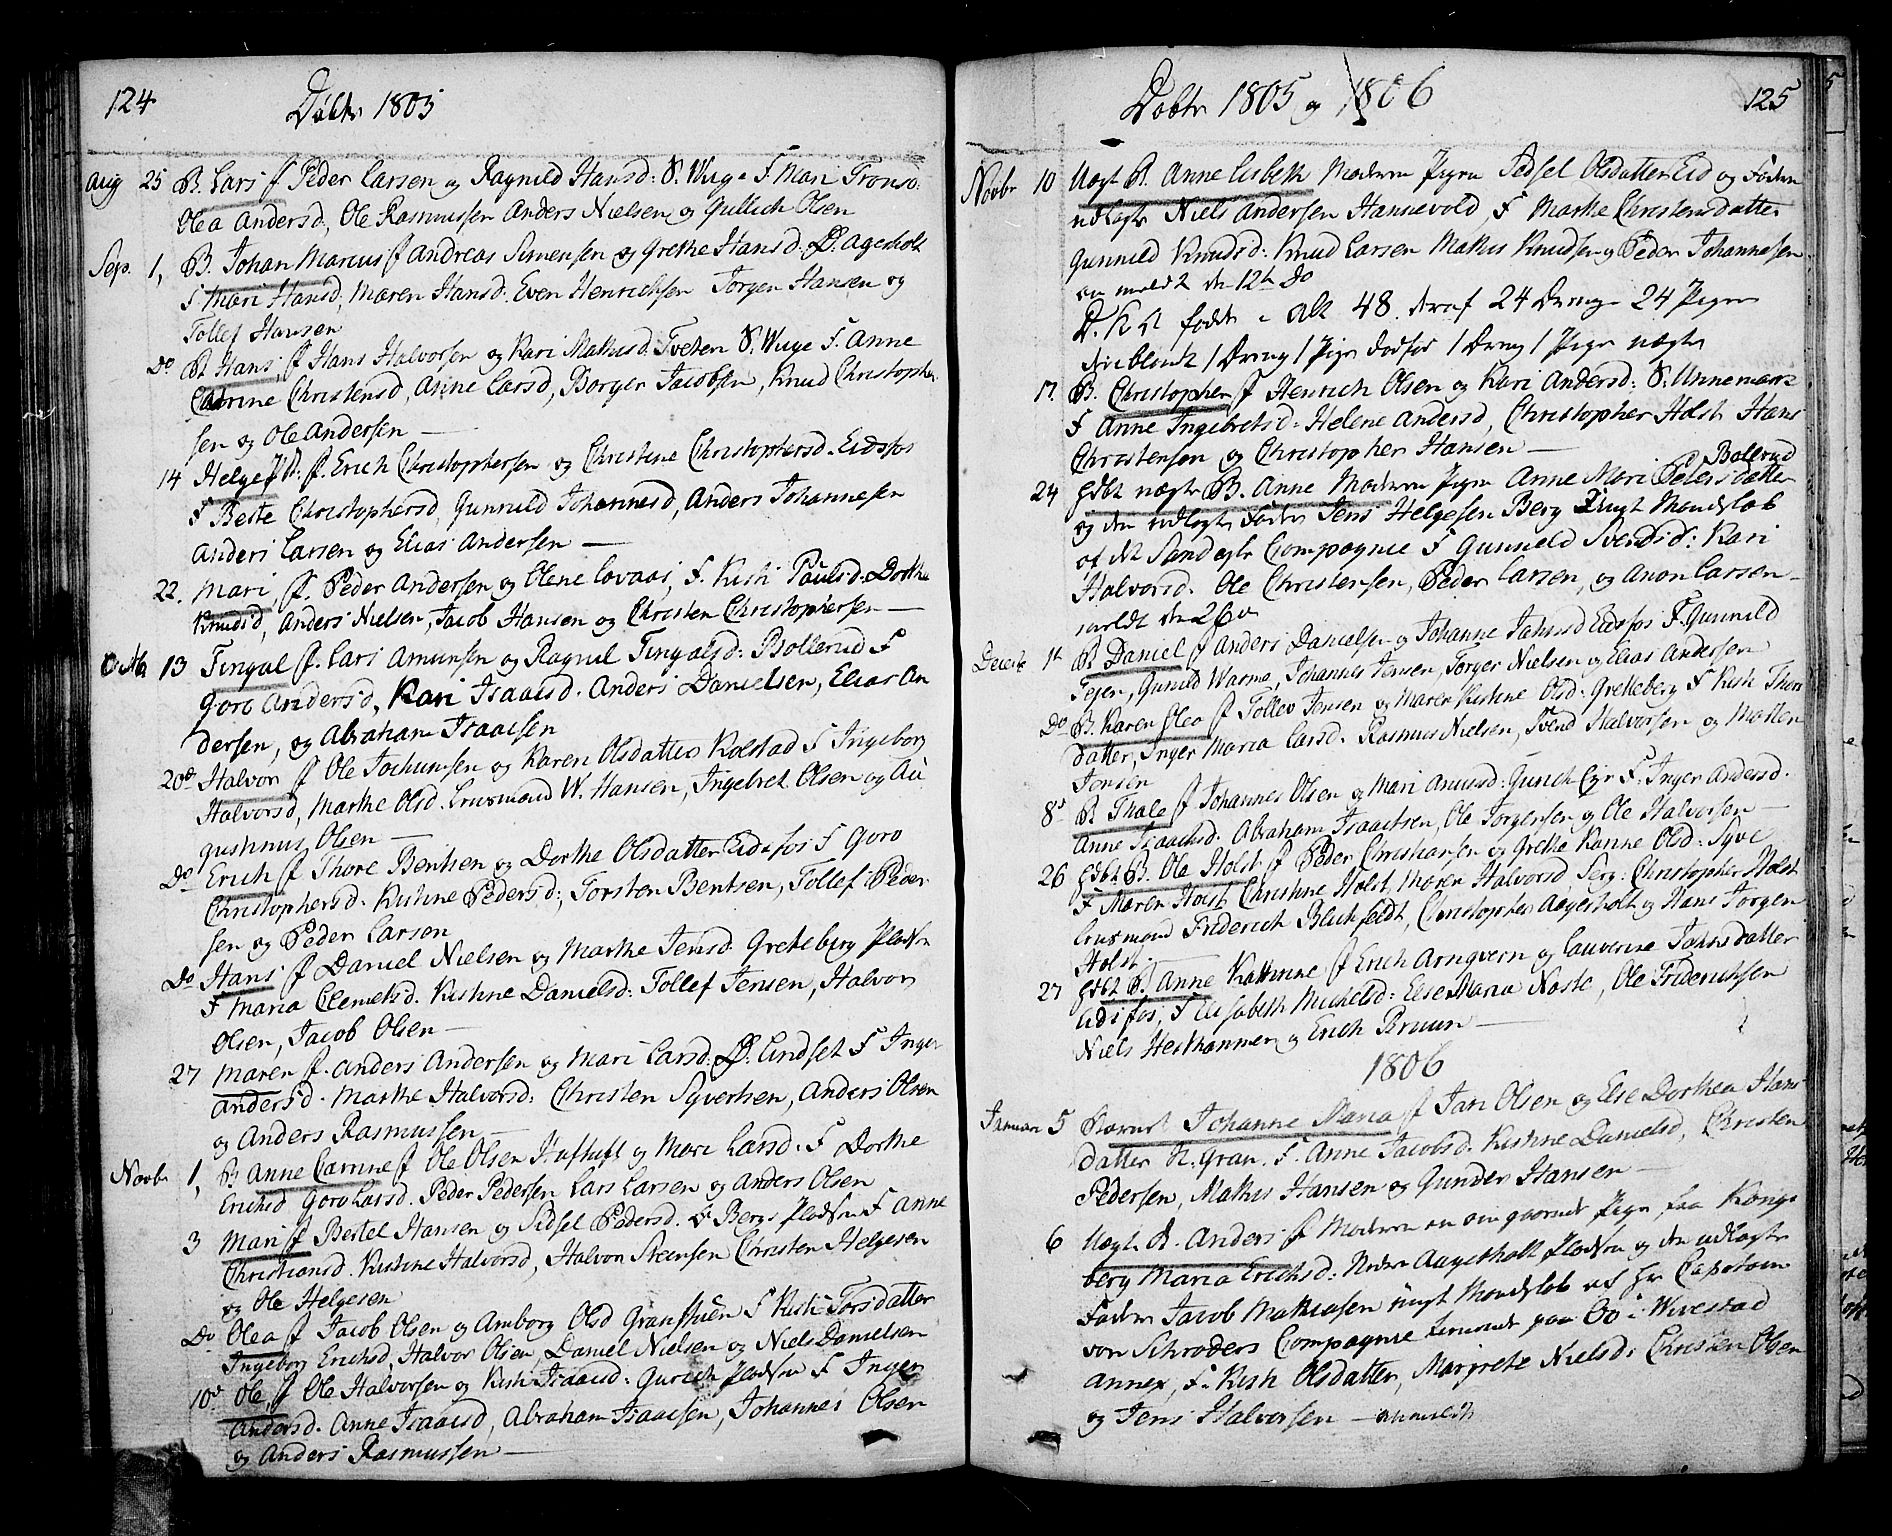 124
Døbte 1805
Aug 25 B. Lars f Peder Larsen og Ragnild Hansd: S. Wuge F Mari Trons:
Olea Andersd, Ole Rasmussen Anders Nielsen og Gullich Olsen
Sep. 1, B. Johan Marcus f Andreas Simensen og Grethe Hansd. D. Agesholt
F Mari Hansd, Maren Hansd. Even Henrichsen Jørgen Hansen og
Tollef Hansen
Do B. Hans, f Hans Halvorsen og Kari Mathisd: Tveten S. Wuge F. Anne
Catrine Christensd, Anne Larsd, Borger Jacobsen, Knud Christopher
sen og Ole Andersen —
14 Helge f. Erich Christophersen og Christine Christophersd. Eidsfos
F Berte Christophersd, Gunnild Johannesd, Anders Johannesen
Anders Larsen og Elias Andersen —
22. Mari, f. Peder Andersen og Olene Lovaas, F. Kisti Paulsd. Dorthe
Knudsd, Anders Nielsen, Jacob Hansen og Christen Christophersen —
Octb 13 Tingul f. Lars Amunsen og Ragnil Tingalsd: Bollerud F
Goro Andersd, Kari Isaacsd. Anders Danielsen, Elias An
dersen, og Abraham Isaacsen
20de Halvor f Ole Jochumsen og Karen Olsdatter Kolstad F Ingeborg
Halvorsd, Marthe Olsd. Lieutnand W. Hansen, Ingebret Olsen og Au
gustinus Olsen —
Do Erich f Thore Bentsen og Dorthe Olsdatter Eidsfos F Goro
Christophersd. Kistine Pedersd: Torsten Bentsen, Tollef Peder
sen og Peder Larsen
Do Hans f Daniel Nielsen og Marthe Jensd. Greteberg Pladsen
F Maria Clemetsd. Kistine Danielsd: Tollef Jensen, Halvor
Olsen, Jacob Olsen —
27 Maren f. Anders Andersen og Mari Larsd: D: Lindset F Inger
Andersd. Marthe Halvorsd: Christen Syvertsen, Anders Olsen
og Anders Rasmussen —
Novbr 1, B Anne Carrine f Ole Olsen Haftuft og Mari Larsd. F Dorthe
Erichsd Goro Larsd. Peder Pedersen Lars Larsen og Anders Olsen
3 Mari f Bertel Hansen og Sidsel Pedersd. Bergs Pladsen F Anne
Christiansd. Kistine Halvorsd, Halvor Steensen Christen Helgesen
og Ole Helgesen
Do Olea f Jacob Olsen og Amborg Olsd F Kisti Torsdatter
Ingeborg Erichsd, Halvor Olsen, Daniel Nielsen og Niels Danielsen
10de Ole f Ole Halvorsen og Kisti Isaacsd: Gurich Pladsen F Inger
Andersd. Anne Isaacsd, Abraham Isaacsen, Johannes Olsen
og Anders Rasmussen —
Døbte 1805 og 1806
125
Novbr 10 Uægte B. Anne Lisbeth Moderen Pigen Sidsel Olsdatter Eid og Faderen
udlagte Niels Andersen Hannevold, F Marthe Christensdatter
Gunnild Knudsd: Knud Larsen Mathis Knudsen og Peder Johannesen
anmeldt den 12te Do
D. K A fødte i alt 48. deraf 24 Drenge 24 Piger
1 Dreng 1 Pige dødfød 1 Dreng 1 Pige uægte
17. B. Christopher f Henrich Olsen og Kari Andersd: S. Unnemark
F Anne Ingebretsd: Helene Andersd, Christopher Holst Hans
Christensen og Christopher Hansen —
24 hdbt uægte B. Anne Moderen Pigen Anne Mari Petersdatter Bollerud
og den udlagte Fader Jens Helgesen Berg Mandskab
af det Compagnie F Gunnild Svendsd: Kari
Halvorsd. Ole Christensen, Peder Larsen, og Anon Larsen —
meldt den 26de
Decbr 1te B. Daniel f Anders Danielsen og Johanne Eidsfos F. Gunnild
Gunild Warme, Johannes Jensen, Torger Nielsen og Elias Andersen
Do B. Karen Olea f Tollev Jensen og Maren Kistine Olsd: Greteberg F Kisti Thors
datter, Inger Maria Larsd. Rasmus Nielsen, Svend Halvorsen og Morten
Jensen
8de B. Thale f Johannes Olsen og Mari Amusd: Gurich Eje F: Inger Andersd.
Anne Isaachsd. Abraham Isaacksen, Ole Jørgensen og Ole Halvorsen —
26 hdbt B. Ola Holst f Peder Christiansen og Grethe Karine Olsd: Syve
F Maren Holst Christine Holst, Maren Halvorsd, Serg: Christopher Holst
Lieutnand Friderich Blichfeldt, Christopher Aagesholt og Hans Jørgen
Holst. —
27 hdbt B. Anne Kathrine f Erich Arnqvern og Laurense Johnsdatter
Eidsfos, F Elisabeth Michelsd: Else Maria Noste, Ole Friderichsen
Niels Hesthammer og Erich Bruun —
1806
Januar 5 Johanne Maria f Jan Olsen og Else Dorthea Hans
datter N. Gran. F. Anne Jacobsd: Kistine Danielsd, Christen
Pedersen, Mathis Hansen og Gunder Hansen —
6 Uægte B. Anders f Moderen en omgaaende Pige fra Kongs
berg Maria Erichsd: Nedre Aagesholt Pladsen og den udlagte
Fader Jacob Mathiesen Mandskab af Hr Capitain
von Schrøders Compagnie paa Oo i Wivestad
Annex, F. Kisti Olsdatter, Margrete Nielsd. Christen Olsen
og Jens Halvorsen — anmeldt